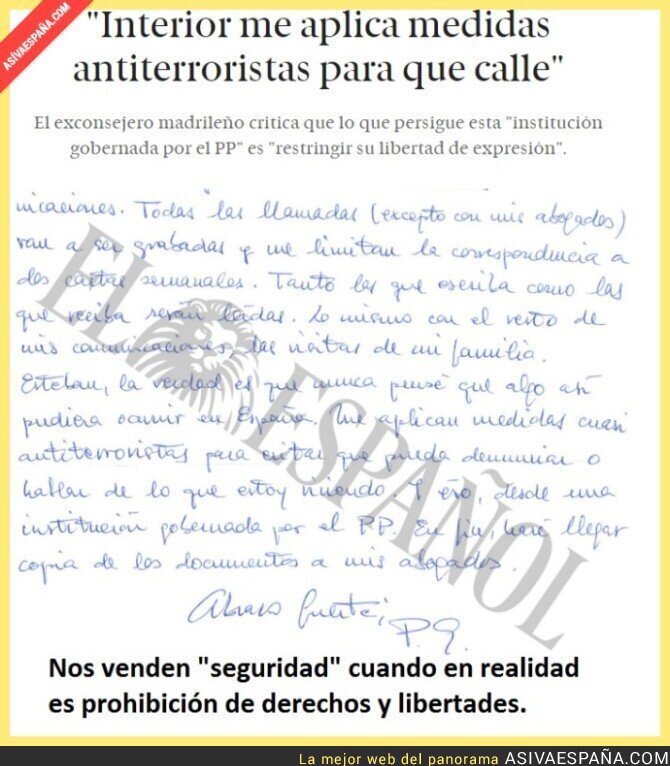 ASÍVAESPAÑA.COM
"Interior me aplica medidas
antiterroristas para que calle"
El exconsejero madrileño critica que lo que persigue esta "institución
gobernada por el PP" es "restringir su libertad de expresión".
nicaciones. Todas las llamadas (excepto con mis abogados)
van a ser grabadas y me limitan la correspondencia a
dos cartas semanales. Tanto las que escriba como las
que reciba serán leídas. Lo mismo con el resto de
mis comunicaciones, las visitas de mi familia.
Esteban, la verdad es que nunca pensé que algo así
pudiera ocurrir en España. Me aplican medidas cuasi
antiterroristas para evitar que pueda denunciar o
hablar de lo que estoy viviendo. Y eso, desde una
institución gobernada por el PP. En fin, haré llegar
copia de los documentos a mis abogados.
Abrazo fuerte,
P.G.
EL ESPAÑOL
Nos venden "seguridad" cuando en realidad
es prohibición de derechos y libertades.
La mejor web del panorama ASIVAESPAÑA.COM